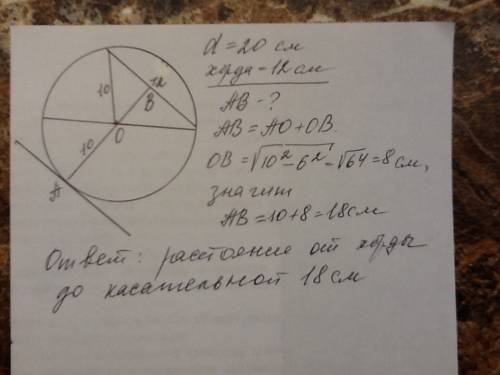 d = 20 см
хорда - 12 см
AB - ?
AB = AO + OB.
OB = √10² - 6² - √64 = 8 см,
значит
AB = 10 + 8 = 18 см
Ответ: расстояние от хорды
до касательной 18 см
10
12
B
O
10
A